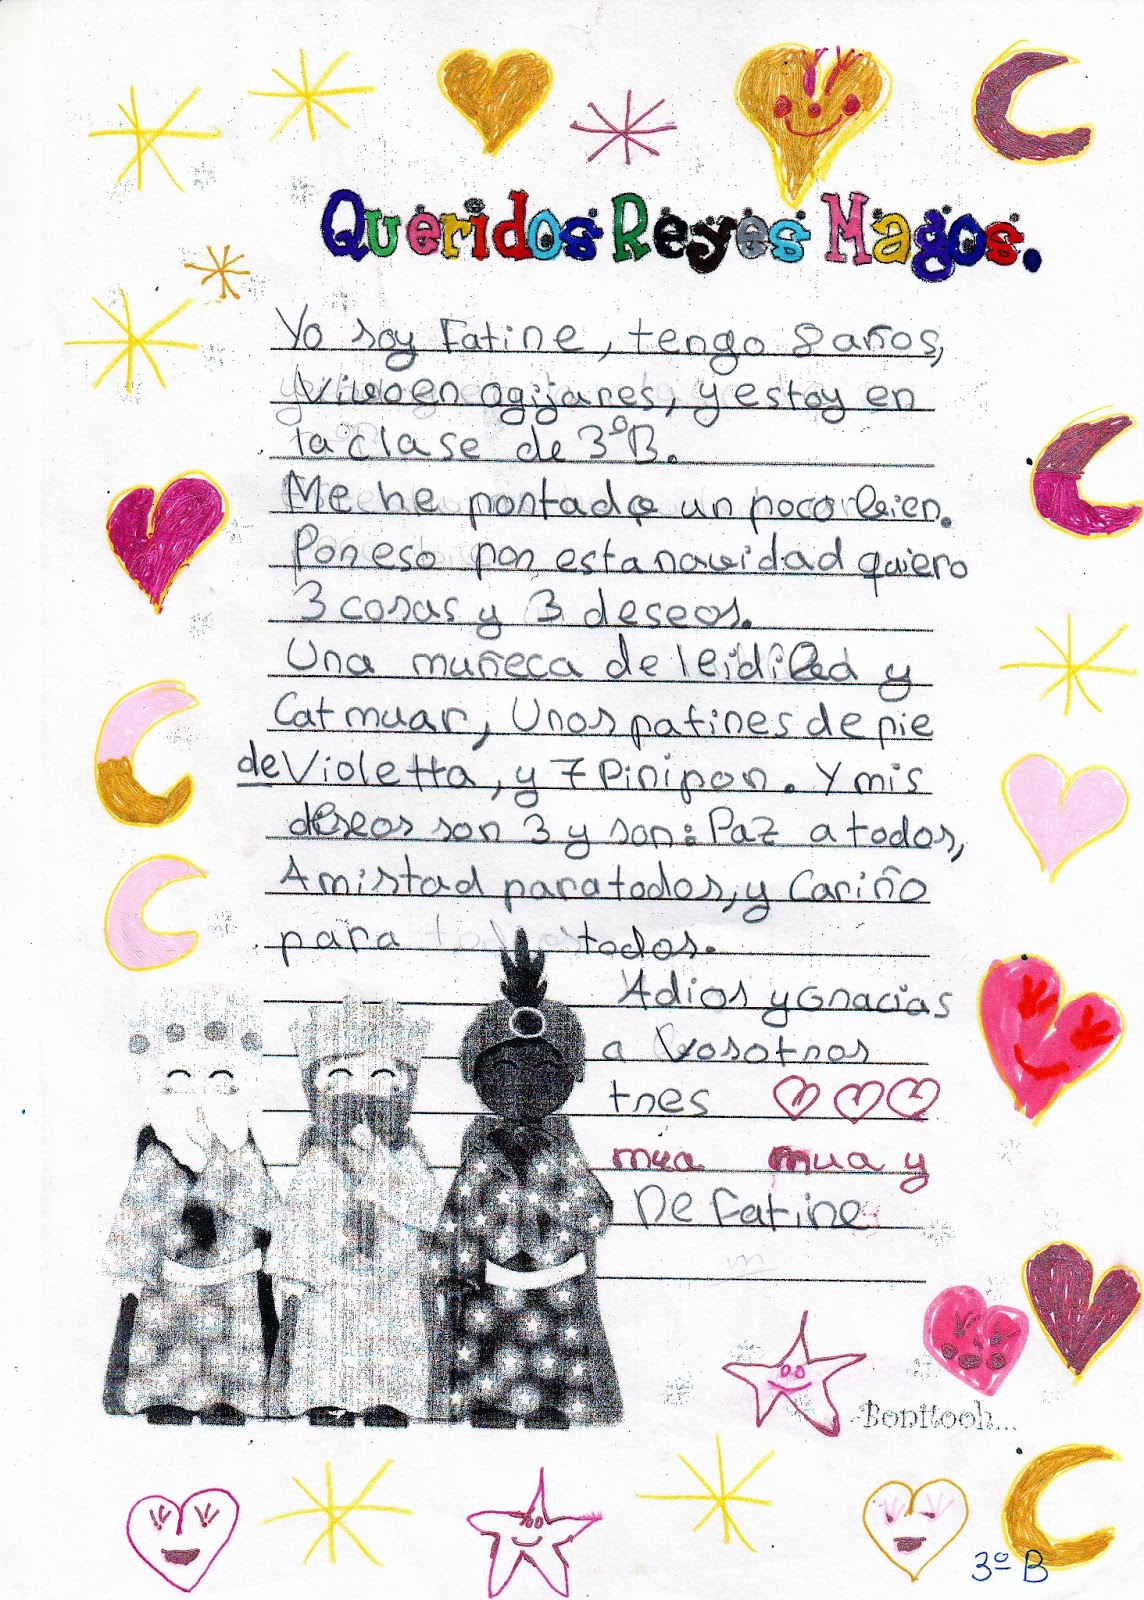 Queridos Reyes Magos.
Yo soy Fatine, tengo 8 años,
Vivo en ogijares, y estoy en
la clase de 3ºB.
Me he portado un poco bien.
Por eso por esta navidad quiero
3 cosas y 3 deseos.
Una muñeca de leidiled y
Catmuar, Unos patines de pie
de Violetta, y 7 Pinipon. Y mis
deseos son 3 y son: Paz a todos,
Amistad para todos, y Cariño
para todos.
Adios y Gracias
a Vosotros
tres
mua mua y
De Fatine
Bonitooh...
3º B